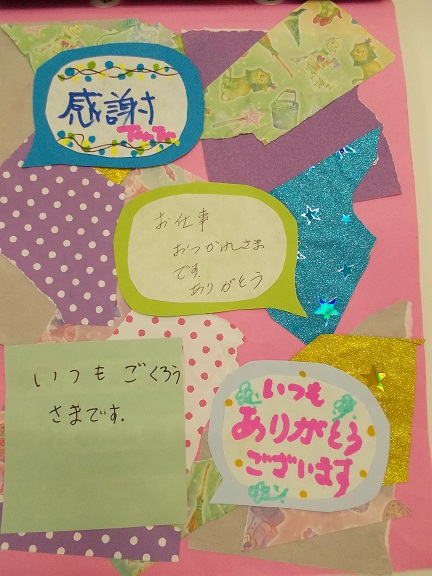 感謝です
お仕事
おつかれさま
です。
ありがとう
いつもごくろう
さまです.
いつも
ありがとう
ございます